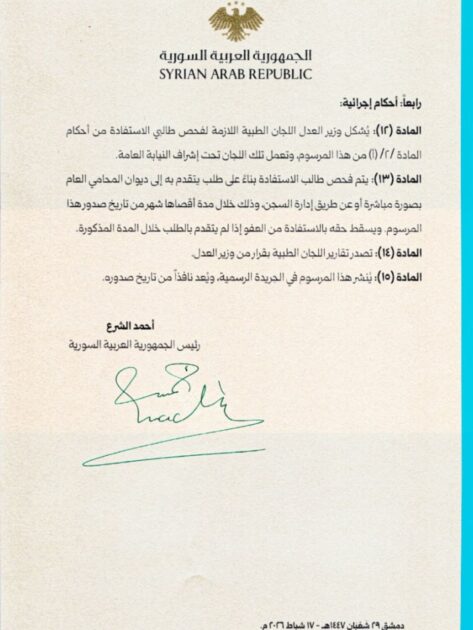 الجمهورية العربية السورية
SYRIAN ARAB REPUBLIC
رابعاً: أحكام إجرائية:
المادة (١٢): يُشكل وزير العدل اللجان الطبية اللازمة لفحص طالبي الاستفادة من أحكام
المادة /٢/ (أ) من هذا المرسوم، وتعمل تلك اللجان تحت إشراف النيابة العامة.
المادة (١٣): يتم فحص طالب الاستفادة بناءً على طلب يتقدم به إلى ديوان المحامي العام
بصورة مباشرة أو عن طريق إدارة السجن، وذلك خلال مدة أقصاها شهر من تاريخ صدور هذا
المرسوم. ويسقط حقه بالاستفادة من العفو إذا لم يتقدم بالطلب خلال المدة المذكورة.
المادة (١٤): تصدر تقارير اللجان الطبية بقرار من وزير العدل.
المادة (١٥): يُنشر هذا المرسوم في الجريدة الرسمية، ويُعد نافذاً من تاريخ صدوره.
أحمد الشرع
رئيس الجمهورية العربية السورية
دمشق ٢٩ شعبان ١٤٤٧هـ - ١٧ شباط ٢٠٢٦ م.